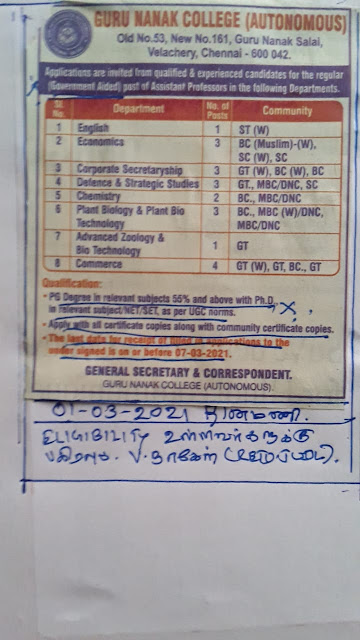 GURU NANAK COLLEGE (AUTONOMOUS)
Old No.53, New No.161, Guru Nanak Salai,
Velachery, Chennai - 600 042.
Applications are invited from qualified & experienced candidates for the regular
(Government Aided) post of Assistant Professors in the following Departments.
Sl. No. Department No. of Posts Community
1 English 1 ST (W)
2 Economics 3 BC (Muslim)-(W),
SC (W), SC
3 Corporate Secretaryship 3 GT (W), BC (W), BC
4 Defence & Strategic Studies 3 GT., MBC/DNC, SC
5 Chemistry 2 BC., MBC/DNC
6 Plant Biology & Plant Bio 3 BC., MBC (W)/DNC,
Technology MBC/DNC
7 Advanced Zoology &
Bio Technology 1 GT
8 Commerce 4 GT (W), GT, BC., GT
Qualification:
• PG Degree in relevant subjects 55% and above with Ph.D.,
in relevant subject/NET/SET, as per UGC norms.
• Apply with all certificate copies along with community certificate copies.
• The last date for receipt of filled in applications to the
under signed is on or before 07-03-2021.
GENERAL SECRETARY & CORRESPONDENT.
GURU NANAK COLLEGE (AUTONOMOUS).
01-03-2021 தினமணி.
உள்ளவர்களுக்கு